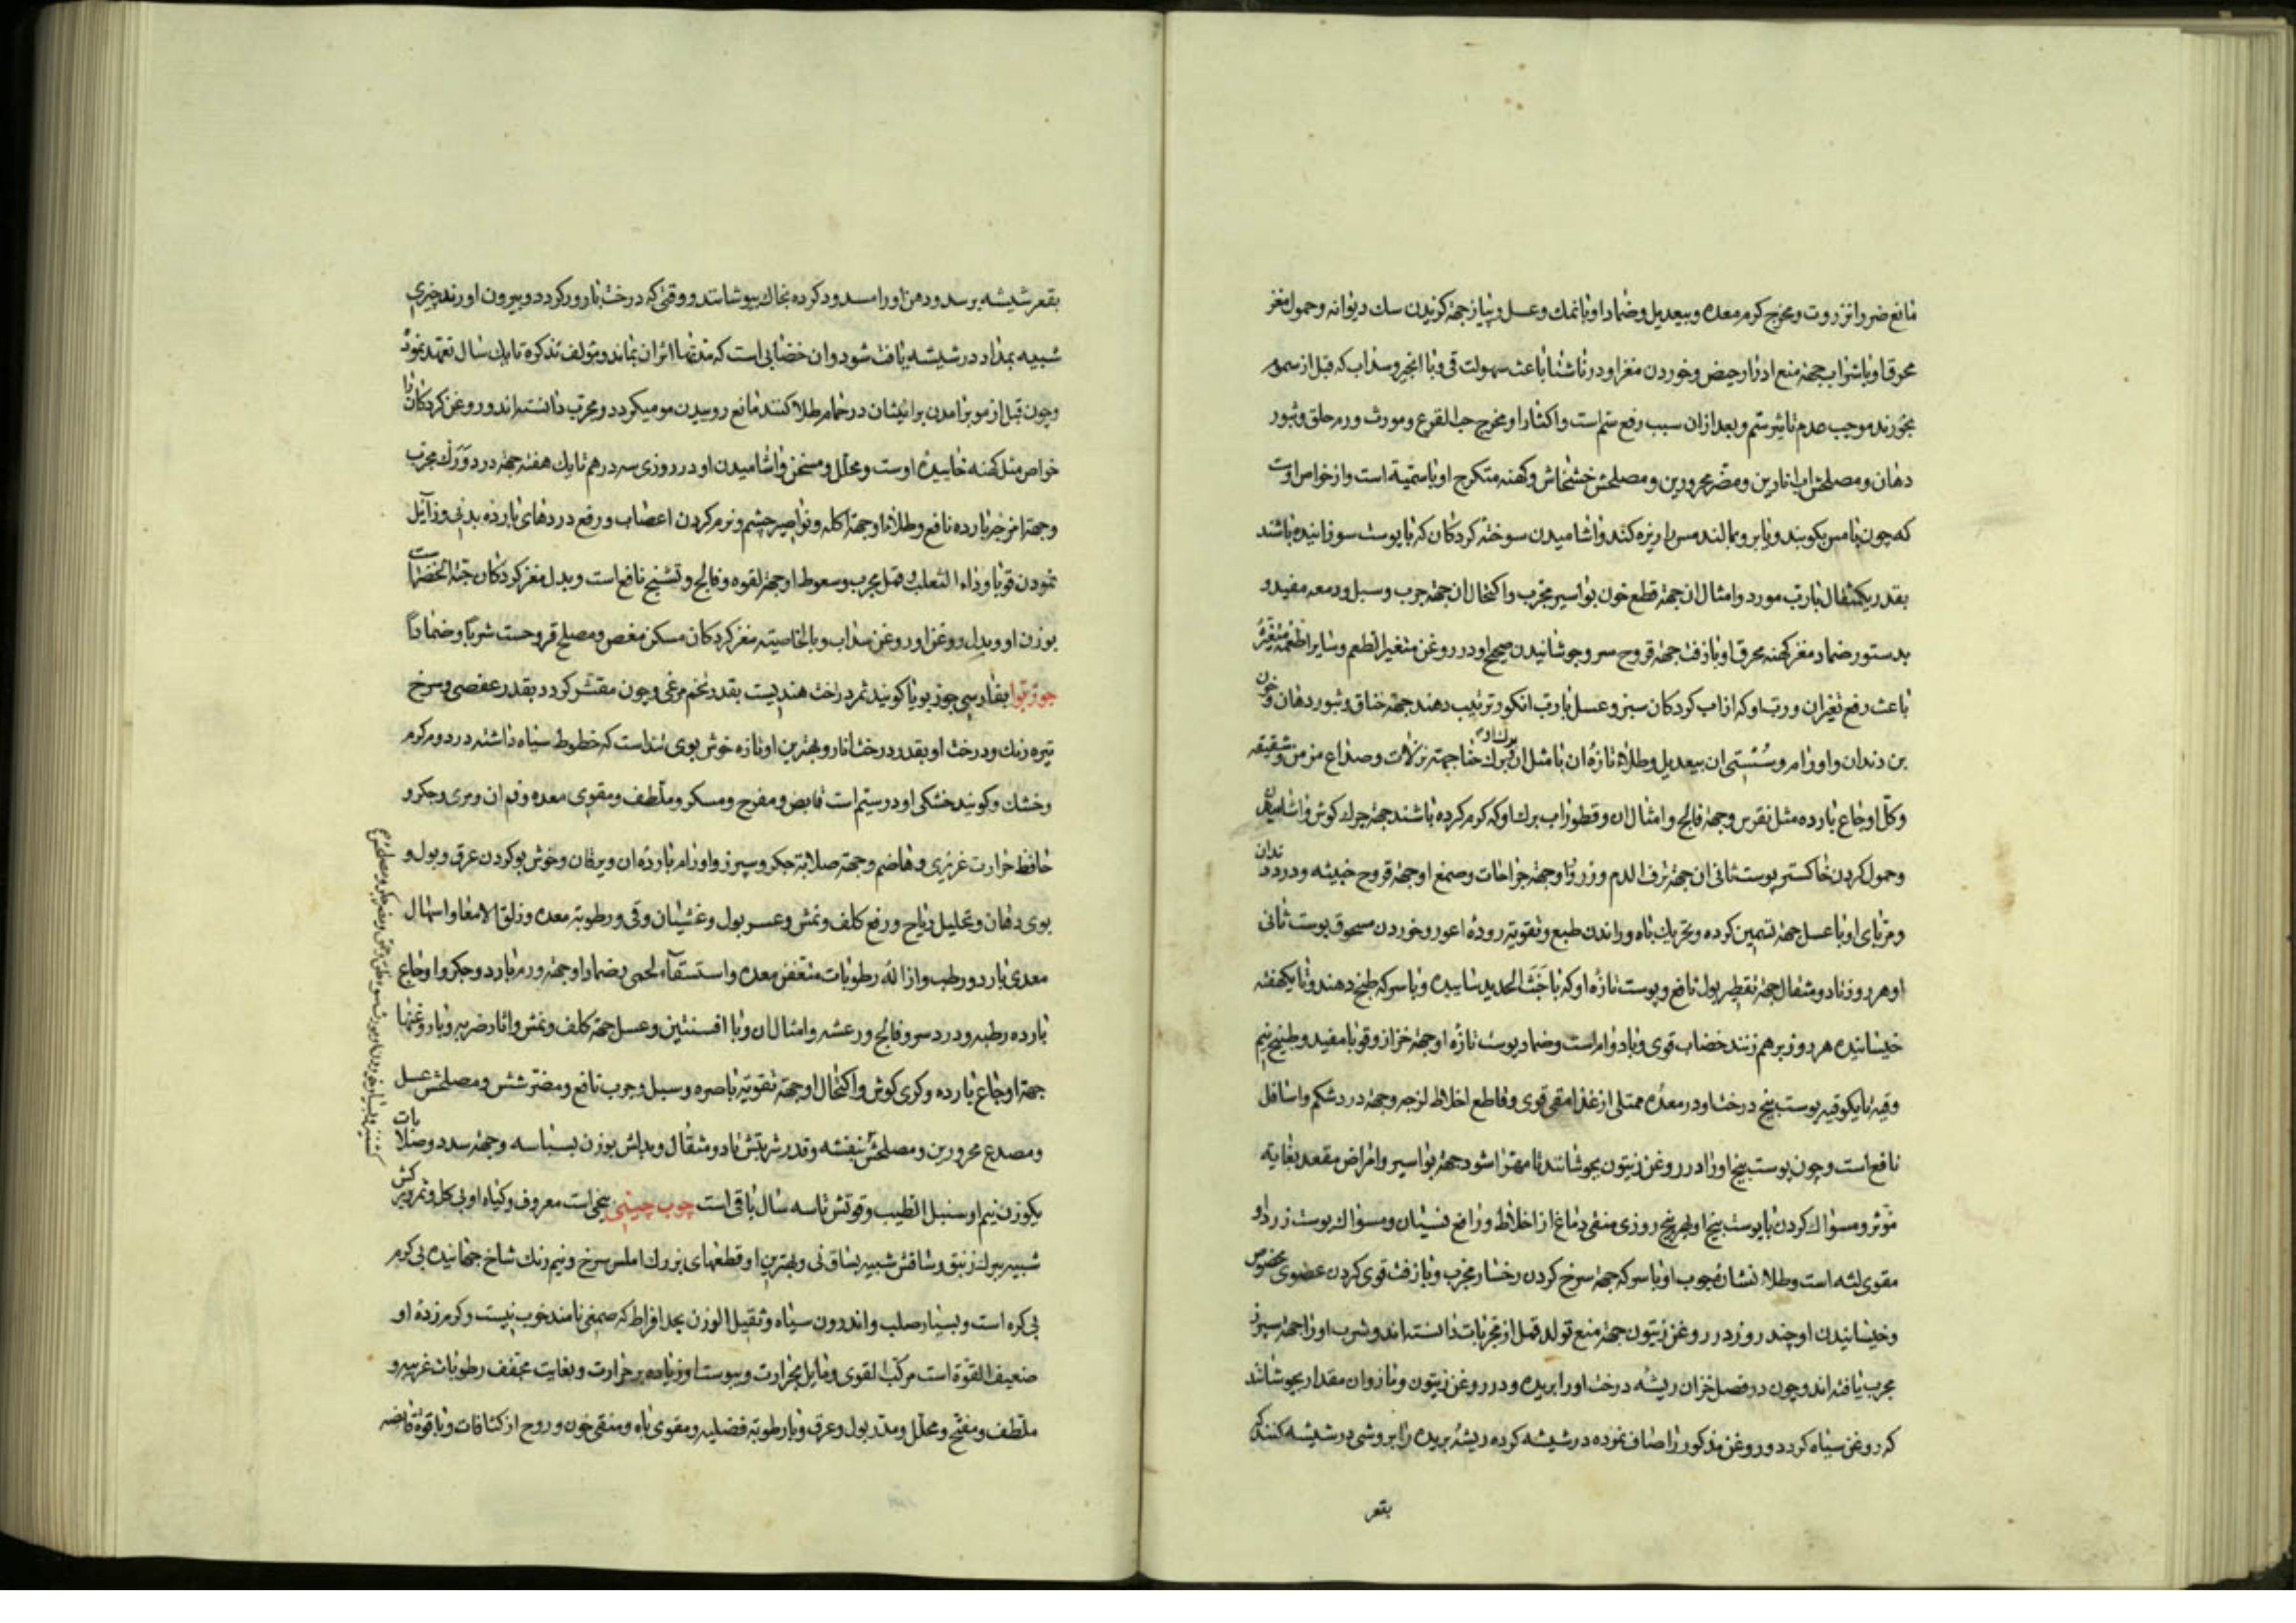 مانع ضرر انزروت و مخرج کرم معده و بیعدیل و ضماد او با نمک و عسل و پیاز جهة کزیدن سک دیوانه و حمول مغز
محرق او با شراب جهة منع ادرار حیض و خوردن مغز او در ناشتا باعث سهولت قی و با انجیر و سداب که قبل از سموم
بخورند موجب عدم تاثیر سم و بعد از ان سبب رفع سم است و اکثار او مخرج حب القرع و مورث ورم حلق و بثور
دهان و مصلحش اب انارین و مضر محرورین و مصلحش خشخاش و کهنه متکرج او با سمیة است و از خواص اوست
که چون با مس بکوبند و یا برو بمالند مس را ریزه کند و اشامیدن سوخته کردکان که با پوست سوزانیده باشند
بقدر یکمثقال با رب مورد و امثال ان جهة قطع خون بواسیر مجرب و اکتحال ان جهة جرب و سبل و دمعه مفید و
بدستور ضماد مغز کهنه محرق او با زفت جهة قروح سر و جوشانیدن صحیح او در روغن متغیر الطعم و سایر اطعمه متغیره
باعث رفع تغیر ان و رب او که از اب کردکان سبز و عسل با رب انکور ترتیب دهند جهة خناق و بثور دهان و خون
بن دندان و اورام و سستی ان بیعدیل و طلاء تازه ان با مثل ان برک حنا جهة نزلات و صداع مزمن و شقیقه
و کل اوجاع بارده مثل نقرس و جهة فالج و امثال ان و قطور اب برک او که کرم کرده باشند جهة چرک کوش و اشامیدن
و حمول کردن خاکستر پوست ثانی ان جهة نزف الدم و ذرور او جهة جراحات و صمغ او جهة قروح خبیثه و درد دندان
و مربای او با عسل جهة تسمین کرده و تحریک باه و راندن طبع و تقویة روده اعور و خوردن مسحوق پوست ثانی
او هر روز تا دو مثقال جهة تقطیر بول نافع و پوست تازه او که با خبث الحدید ساییده و با سرکه طبخ دهند و تا یکهفته
خیسانیده هر روز برهم زنند خضاب قوی و با دوام است و ضماد پوست تازه او جهة خزاز و قوبا مفید و طبیخ نیم
وقیه تا یکوقیه پوست بیخ درخت او در معده ممتلی از غذا مقی قوی و قاطع اخلاط لزجه و جهة درد شکم و اسافل
نافع است و چون پوست بیخ او را در روغن زیتون بجوشانند تا مهرا شود جهة بواسیر و امراض مقعد بغایة
مؤثر و مسواک کردن با پوست بیخ او بهر پنج روزی منقی دماغ از اخلاط و رافع نسیان و مسواک پوست زرد او
مقوی لثه است و طلاء نشاره چوب او با سرکه جهة سرخ کردن رخسار مجرب و با زفت قوی کردن عضوی مخصوص
و خیسانیدن او چند روز در روغن زیتون جهة منع تولد قمل از مجربات دانسته اند و شرب او را جهة سپرز
مجرب یافته اند و چون در فصل خزان ریشه درخت او را بریده و در روغن زیتون و مازوان مقدار بجوشانند
که روغن سیاه کردد و روغن مذکور را صاف نموده در شیشه کرده ریشه بریده را بروشی در شیشه کنند که
بقعر
بقعر شیشه برسد و دهن او را مسدود کرده بخاک بپوشانند و وقتی که درخت بارور کردد و بیرون اورند چیزی
شبیه بمداد در شیشه یافت شود و ان خضابی است که مدتها اثر ان بماند و مؤلف تذکره تا یک سال تعهد نموده
و چون قبل از مو برامدن بر ایشان در حمام طلا کنند مانع روییدن مو میکردد و مجرب دانسته اند و روغن کردکان را
خواص مثل کهنه خاییده اوست و محلل و مسخن و اشامیدن او در روزی سه درهم تا یک هفته جهة درد ورک مجرب
و جهة امزجه بارده نافع و طلاء او جهة اکله و نواصیر چشم و نرم کردن اعصاب و رفع دردهای بارده بدنی و زائل
نمودن قوبا و داء الثعلب و قمل مجرب و سعوط او جهة لقوه و فالج و تشنج نافع است و بدل مغز کردکان حبة الخضرا است
بوزن او و بدل روغن او روغن سداب و بالخاصیة مغز کردکان مسکن مغص و مصلح قروحست شربا و ضمادا
جوز بوا بفارسی جوز بویا کویند ثمر درخت هندیست بقدر تخم مرغی و چون مقشر کردد بقدر عفصی و سرخ
تیره رنک و درخت او بقدر درخت انار و بهترین او تازه خوش بوی تند است که خطوط سیاه داشته در دوم کرم
و خشک و کویند خشکی او در سیم است قابض و مفرح و مسکر و ملطف و مقوی معده و فم ان و مری و جکر و
حافظ حرارت غریزی و هاضم و جهة صلابة جکر و سپرز و اورام بارده ان و یرقان و خوش بو کردن عرق و بول و
بوی دهان و تحلیل ریاح و رفع کلف و نمش و عسر بول و غثیان و قی و رطوبة معده و زلق الامعا و اسهال
معدی بارد و رطب و ازاله رطوبات متعفن معده و استسقاء لحمی و ضماد او جهة ورم بارد و جکر و اوجاع
بارده رطبه و درد سر و فالج و رعشه و امثال ان و با افسنتین و عسل جهة کلف و نمش و اثار ضربه و با روغنها
جهة اوجاع بارده و کری کوش و اکتحال او جهة تقویة باصره و سبل و جرب نافع و مضر شش و مصلحش عسل
و مصدع محرورین و مصلحش بنفشه و قدر شربتش تا دو مثقال و بدلش بوزن بسباسه و جهة سدد و صلابات
یکوزن نیم او سنبل الطیب و قوتش تا سه سال باقی است چوب چینی بیخی است معروف و کیاه او بی کل و ثمر و برکش
شبیه ببرک زنبق و ساقش شبیه بساق نی و بهترین او قطعهای بزرک املس سرخ و نیم رنک شاخ جهانیده بی کرم
بی کره است و بسیار صلب و اندرون سیاه و ثقیل الوزن بحد افراط که صمغی نامند خوب نیست و کرم زده او
ضعیف القوة است مرکب القوی و مایل بحرارت و یبوست او زیاده بر حرارت و بغایت مجفف رطوبات غریبه و
ملطف و مفتح و محلل و مدر بول و عرق و با رطوبة فضلیه و مقوی باه و منقی خون و روح از کثافات و با قوة قابضه